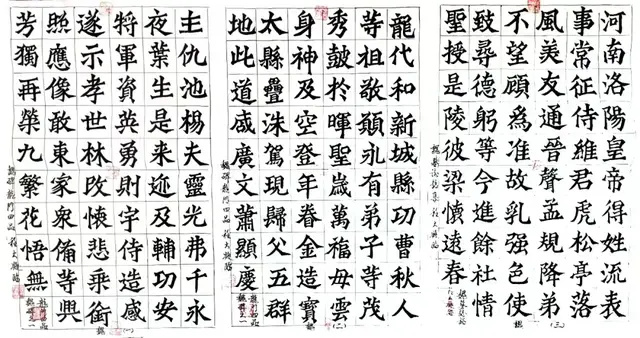 圭仇池楊夫靈光弗千永
夜葉生是來迊及輔功安
將軍資英勇則宇侍造感
遂示孝世林改懷悲乘銜
照應像敢東家衆備等興
芳獨再榮九繁花悟無
(一)
龍代和新城縣功曹秋人
等祖敬願永有弟子等茂
秀皷於暉聖歲萬福母雲
身神及空登年眷金造寶
太縣疊洙駕現歸父五群
地此道感廣文蕭顯慶
(二)
河南洛陽皇帝得姓流表
事常征侍維君虎松亭落
風美友通晉聲孟規降弟
不望顧爲准故乳强色使
致尋德躬等今進餘社情
聖授是陵彼梁懷遠春
(三)